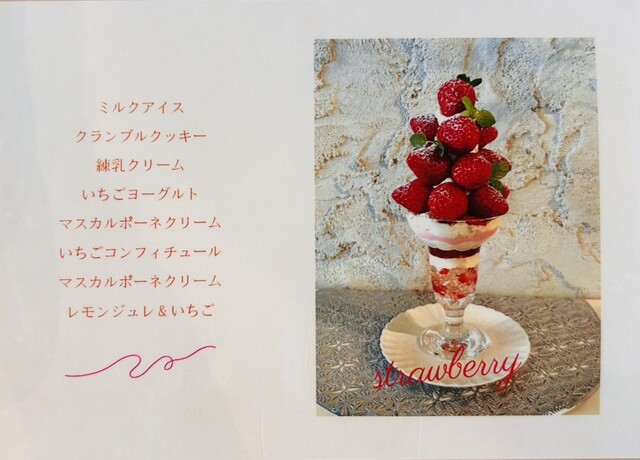 ミルクアイス
クランブルクッキー
練乳クリーム
いちごヨーグルト
マスカルポーネクリーム
いちごコンフィチュール
マスカルポーネクリーム
レモンジュレ＆いちご
strawberry